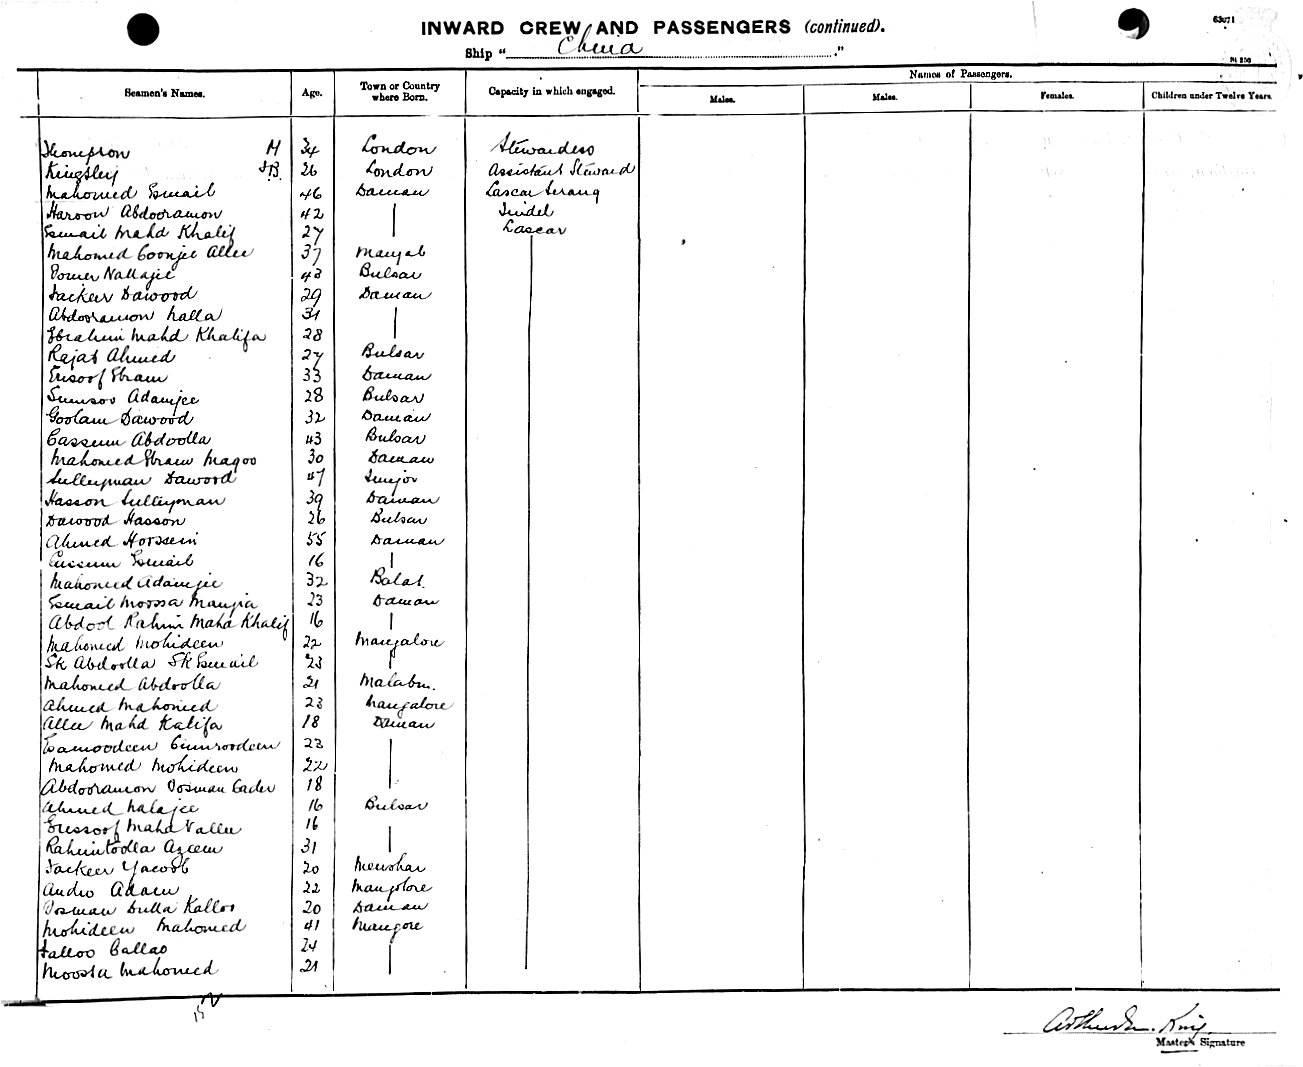 63071
INWARD CREW AND PASSENGERS (continued).
Ship "China."
Seamen's Names. Age. Town or Country where Born. Capacity in which engaged. Names of Passengers.
Males. Males. Females. Children under Twelve Years.
Thompson M 34 London Stewardess
Kingsley 26 London Assistant Steward
Mahomed Esmail 46 Daman Lascar Serang
Haroon Abdooramon 42 Tindel
Esmail Mahd Khalif 27 Lascar
Mahomed Coonjee Allee 37
Nallajee 43 Bulsar
Jackeer Dawood 29 Daman
Abdooramon Nalla 31
Ebrahim Mahd Khalifa 28
Rajab Ahmed 27 Bulsar
Eusoof Ebram 33 Daman
Adamjee 28 Bulsar
Goolam Dawood 32 Daman
Cassum Abdoolla 43 Bulsar
Mahomed Ebram Magoo 30 Daman
Sulleyman Dawood 47
Hasson Sulleyman 39 Daman
Dawood Hasson 26 Bulsar
Ahmed Hossein 55 Daman
Esmail 16
Mahomed Adamjee 32
Esmail Moossa Manjia 23 Daman
Abdool Rahim Mahd Khalif 16
Mahomed Mohideen 22 Mangalore
Sk Abdoolla Sk Esmail 23
Mahomed Abdoolla 21
Ahmed Mahomed 23 Mangalore
Allee Mahd Kalifa 18 Daman
23
Mahomed Mohideen 22
Abdooramon Oosman Cader 18
Ahmed Nalajee 16 Bulsar
Eussoof Mahd Vallee 16
Rahimtoolla Azeem 31
Jackeer Yacoob 20
Adam 22
Oosman Dulla Kalloo 20 Daman
Mohideen Mahomed 41
24
Moossa Mahomed 21
Master's Signature